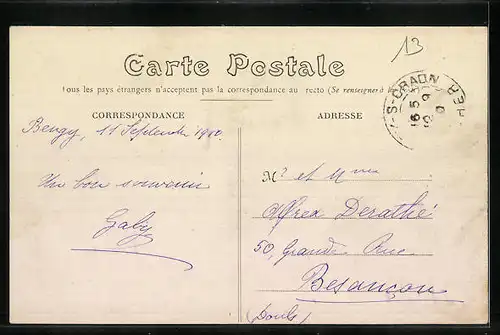 13
Carte Postale
Tous les pays étrangers n'acceptent pas la correspondance au recto (Se renseigner à la
CORRESPONDANCE
ADRESSE
Bengy, 15 Septembre
Un bon souvenir
Gaby
Mr et Mme
Alfred Derathé
50, Grande Rue
Besançon
(Doubs)
-S-CRAON
CHER
16